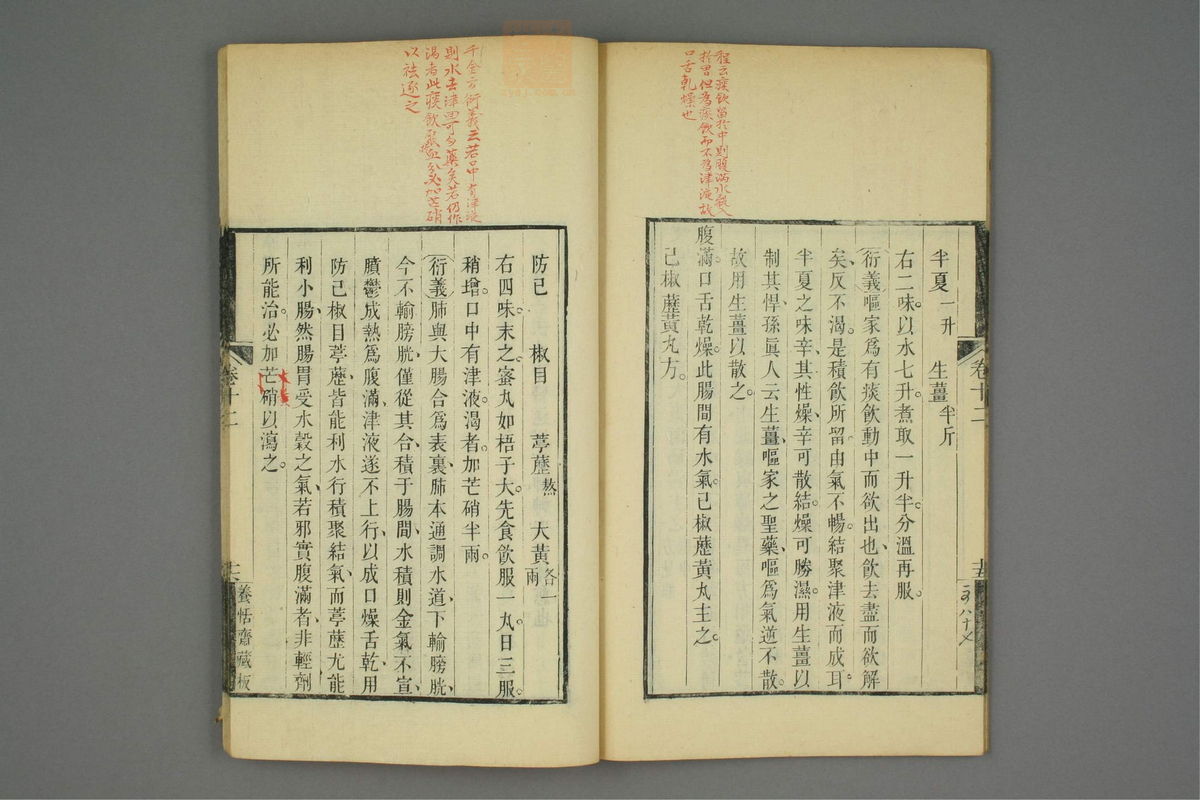 程云痰飲留於中則腹滿水氣入
於胃但為痰飲而不為津液故
口舌乾燥也
半夏一升 生薑半斤
右二味以水七升煮取一升半分溫再服
衍義嘔家爲有痰飲動中而欲出也飲去盡而欲解
矣反不渴是積飲所留由氣不暢結聚津液而成耳
半夏之味辛其性燥辛可散結燥可勝濕用生薑以
制其悍孫眞人云生薑嘔家之聖藥嘔爲氣逆不散
故用生薑以散之
腹滿口舌乾燥此腸間有水氣已椒藶黃丸主之
己椒藶黃丸方
卷十二
十五
千金方衍義云若口中有津液
則水去津回可勿藥矣若仍作
渴者此痰飲聚血分必加芒硝
以祛逐之
防已 椒目 葶藶熬 大黃各一兩
右四味末之蜜丸如梧子大先食飲服一丸日三服
稍增口中有津液渴者加芒硝半兩
衍義肺與大腸合爲表裏肺本通調水道下輸膀胱
今不輸膀胱僅從其合積于腸間水積則金氣不宣
膹鬱成熱爲腹滿津液遂不上行以成口燥舌乾用
防己椒目葶藶皆能利水行積聚結氣而葶藶尤能
利小腸然腸胃受水穀之氣若邪實腹滿者非輕劑
所能治必加芒硝以瀉之
大黃
卷十二
十六
養恬齋藏板